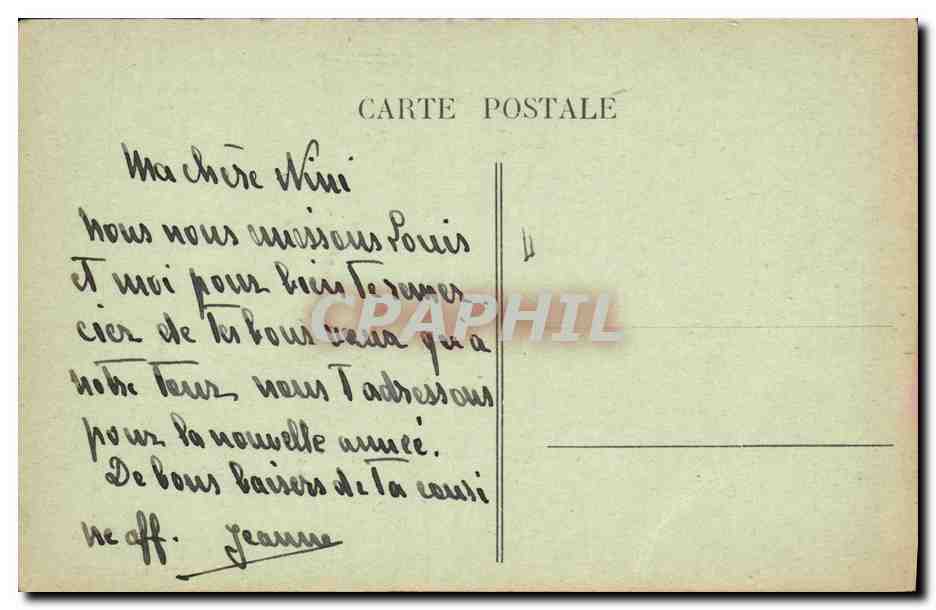 CARTE POSTALE
Ma chère Nini
nous nous unissons Louis
et moi pour bien te remer-
cier de tes bons vœux qu'à
notre tour nous t'adressons
pour la nouvelle année.
De bons baisers de ta cousi
ne aff. Jeanne
CPAPHIL